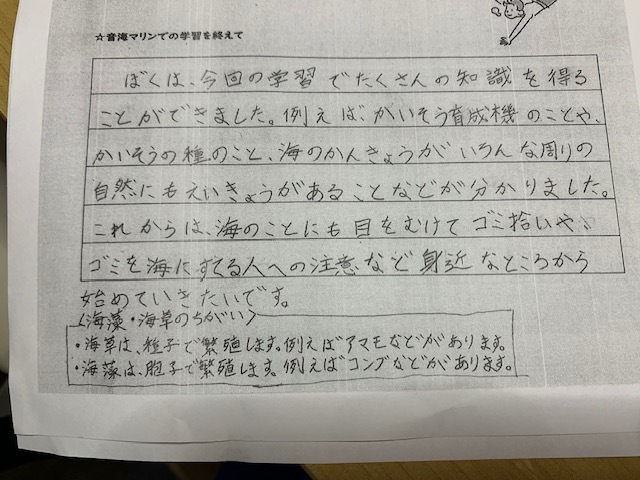 ☆音海マリンでの学習を終えて
ぼくは、今回の学習でたくさんの知識を得る
ことができました。例えば、かいそう育成機のことや、
かいそうの種のこと、海のかんきょうがいろんな周りの
自然にもえいきょうがあることなどが分かりました。
これからは、海のことにも目をむけてゴミ拾いや、
ゴミを海にすてる人への注意など身近なところから
始めていきたいです。
〈海藻・海草のちがい〉
・海草は、種子で繁殖します。例えばアマモなどがあります。
・海藻は、胞子で繁殖します。例えばコンブなどがあります。